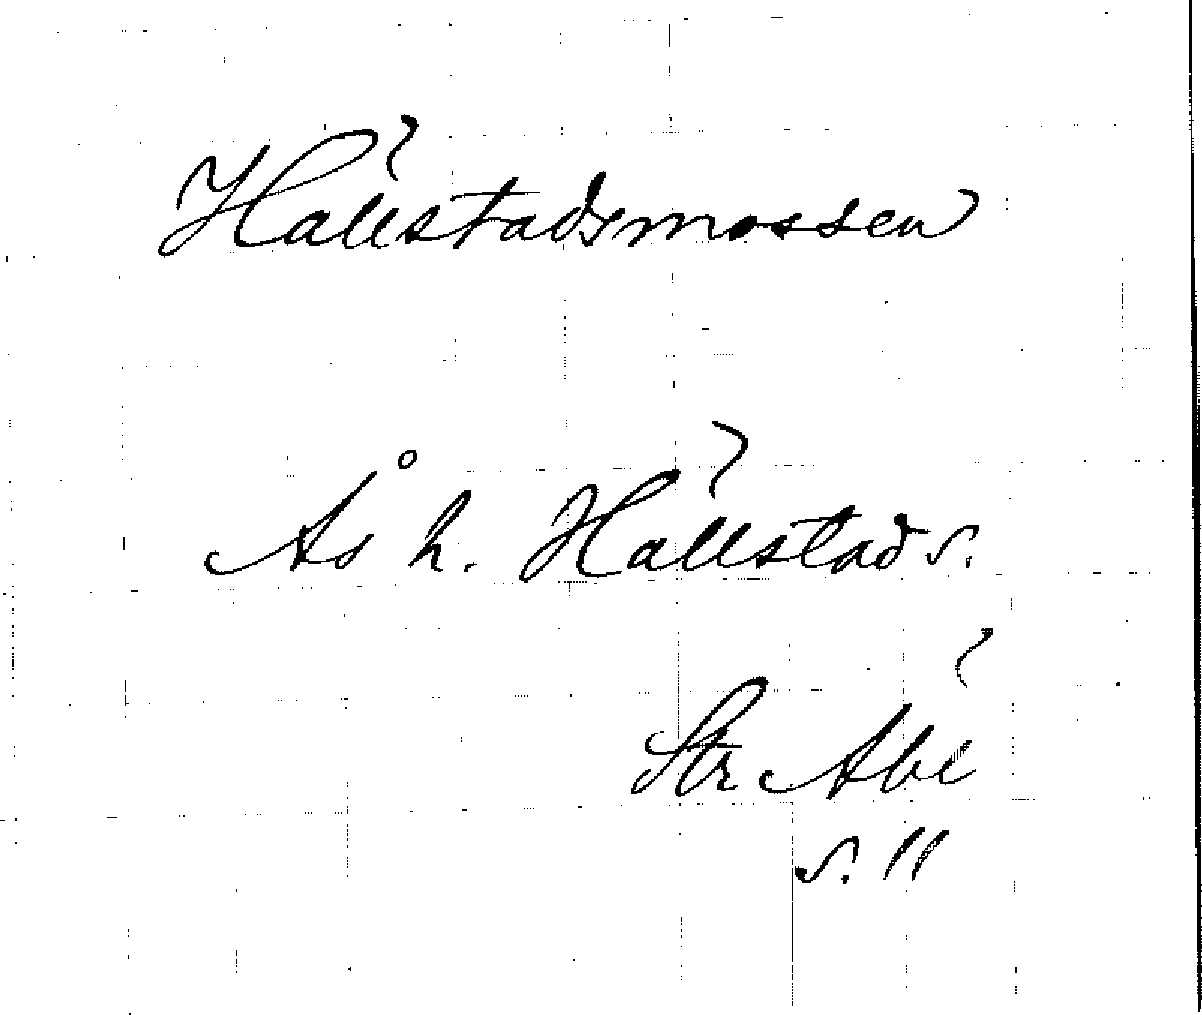 Hallstadsmossen
Ås h. Hallstad s.
Str Abé
s. 11